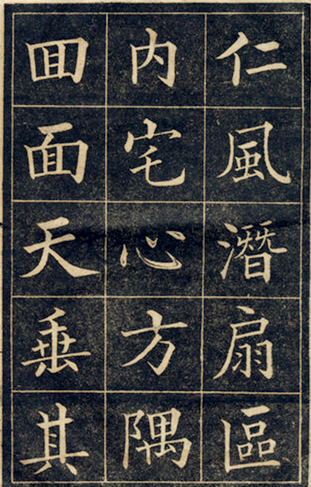 仁風潛扇區
内宅心方隅
囬面天垂其